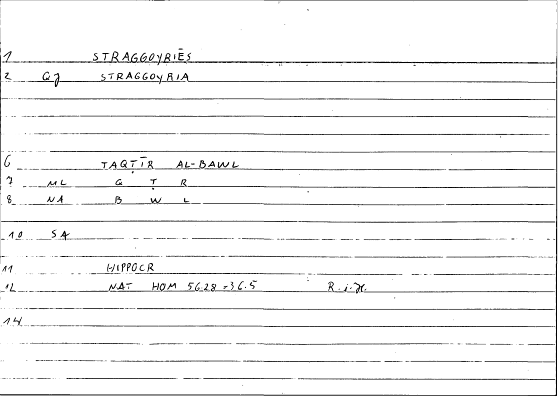 1 STRAGGOYRIĒS
2 GJ STRAGGOYRIA
6 TAQṬĪR AL-BAWL
7 ML Q Ṭ R
8 NA B W L
10 SA
11 HIPPOCR
12 NAT HOM 56.28 = 36.5
14